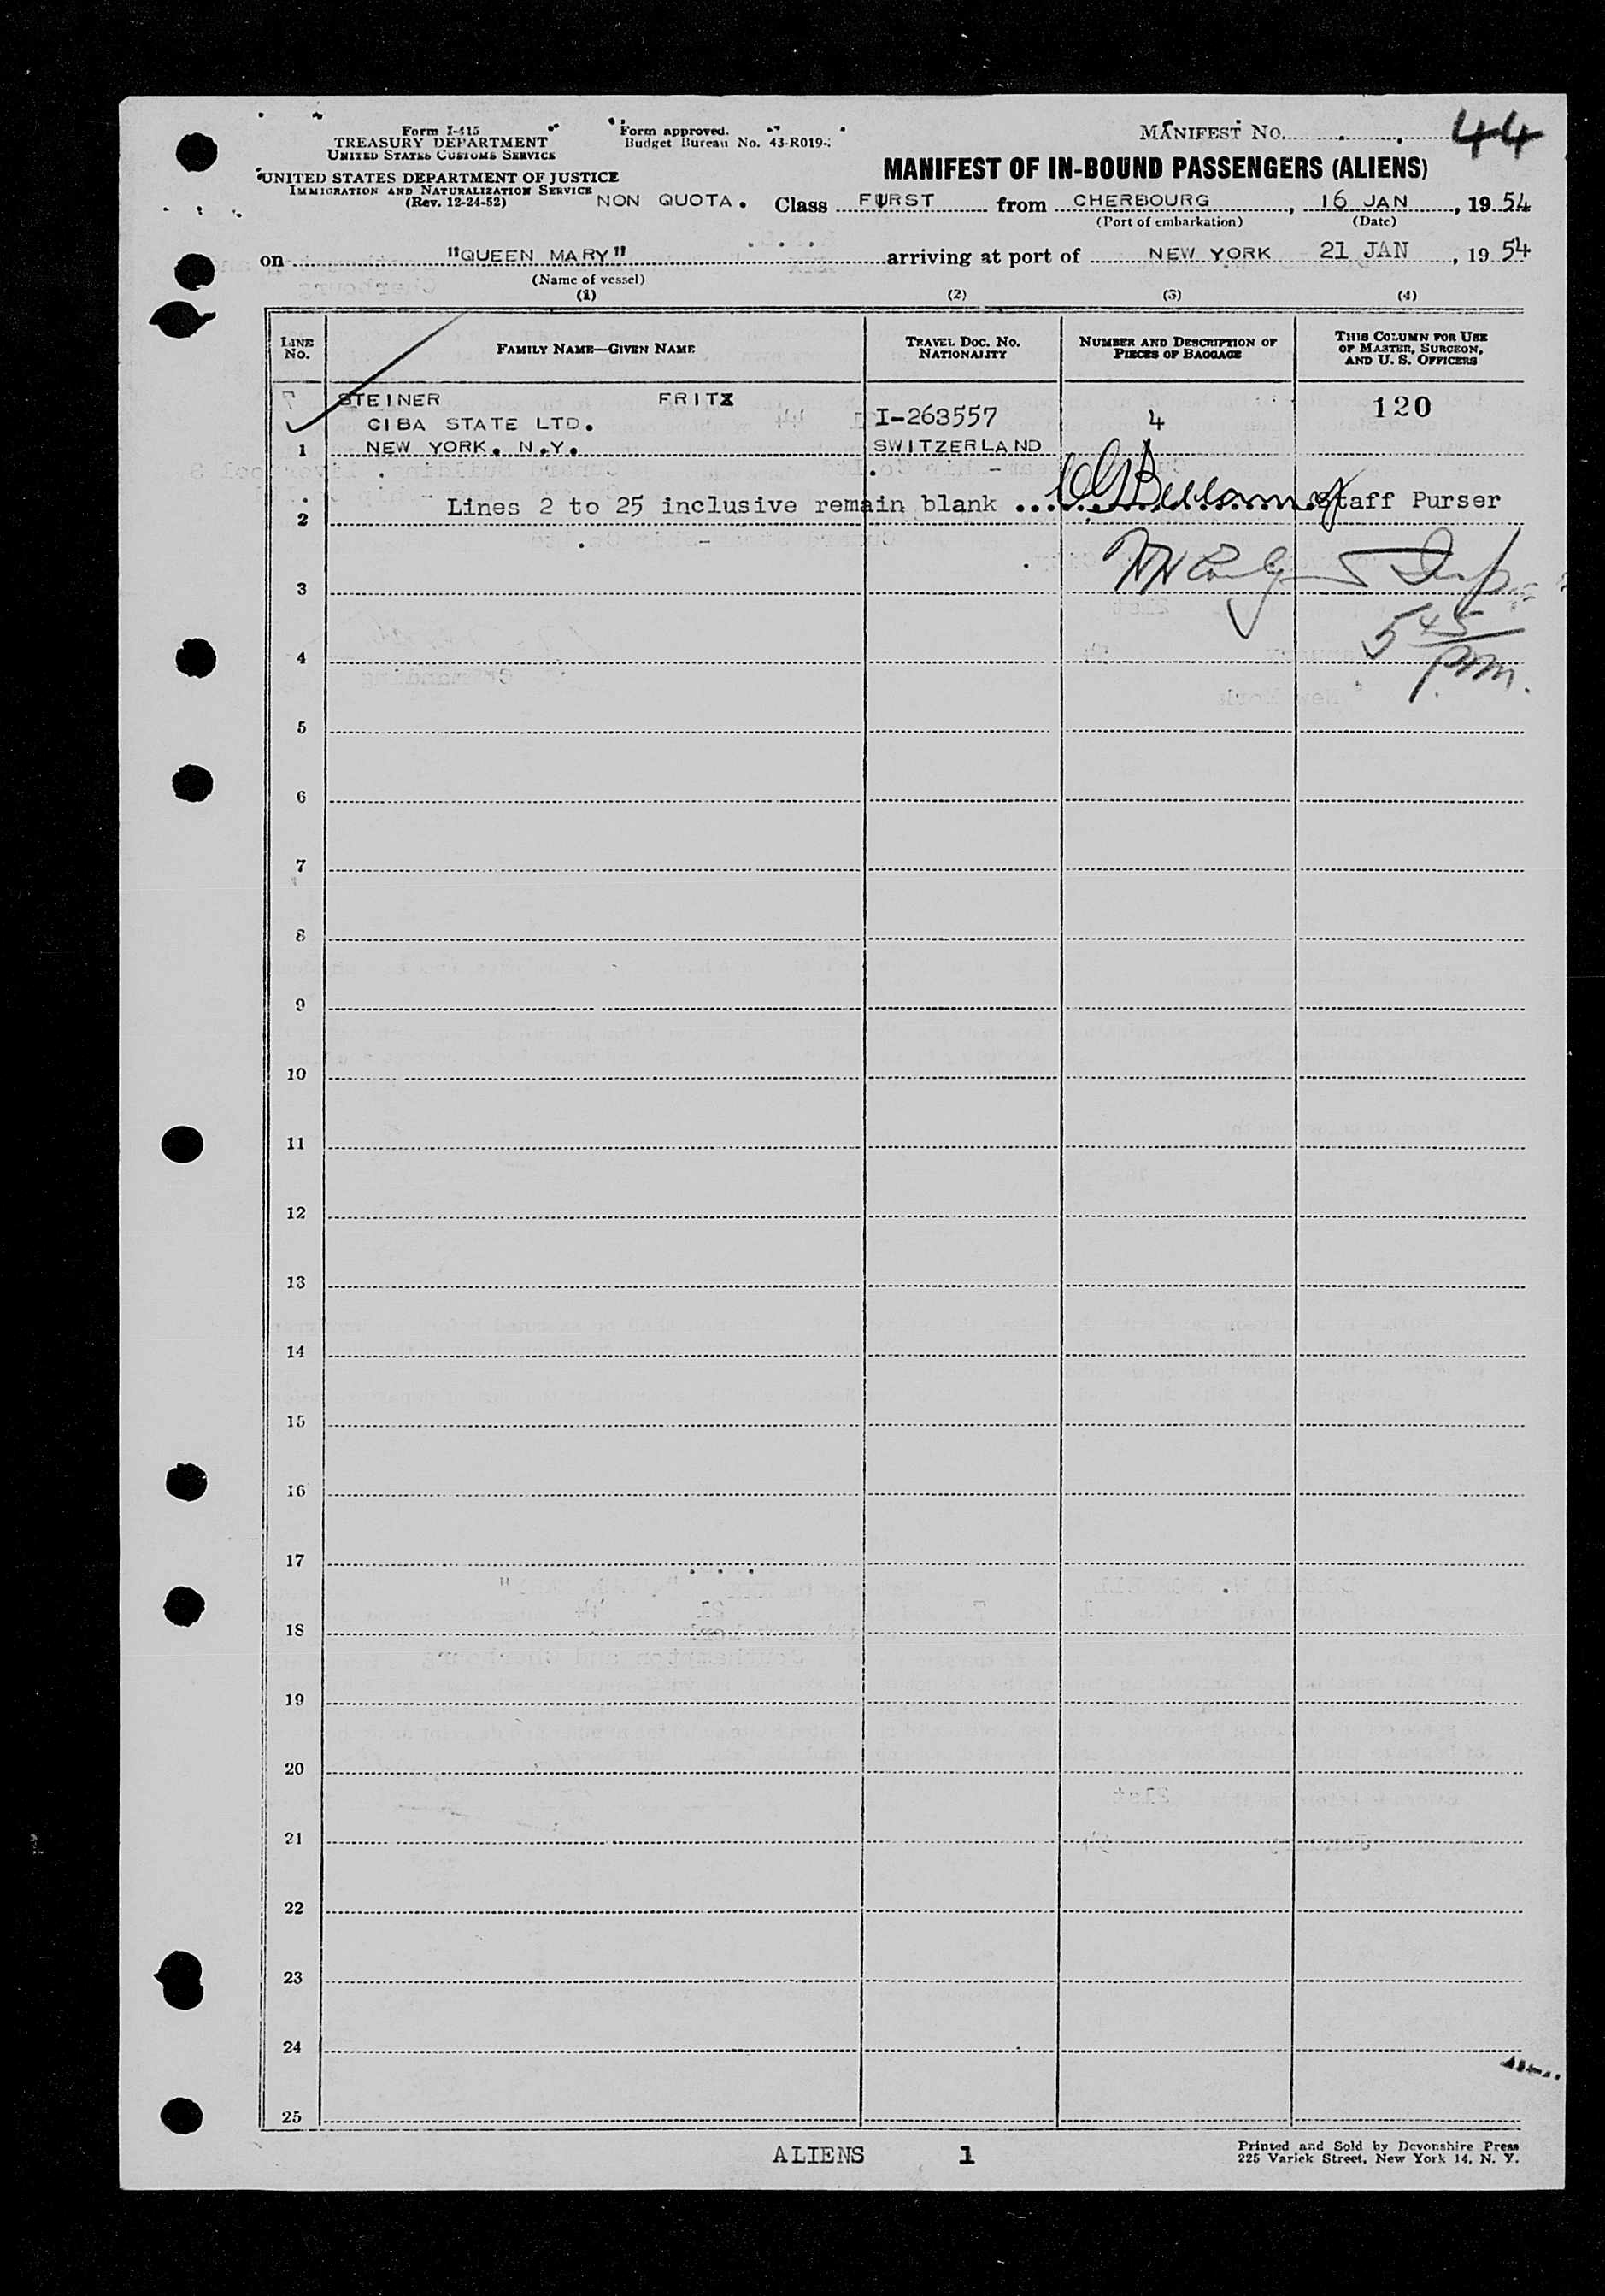 Form I-415
TREASURY DEPARTMENT
UNITED STATES CUSTOMS SERVICE
UNITED STATES DEPARTMENT OF JUSTICE
IMMIGRATION AND NATURALIZATION SERVICE
(Rev. 12-24-52)
Form approved.
Budget Bureau No. 43-R019-
MANIFEST NO. 44
MANIFEST OF IN-BOUND PASSENGERS (ALIENS)
NON QUOTA. Class FIRST from CHERBOURG, 16 JAN, 1954
(Port of embarkation) (Date)
on "QUEEN MARY" arriving at port of NEW YORK 21 JAN, 1954
(Name of vessel)
(1) (2) (3) (4)
LINE No. FAMILY NAME—GIVEN NAME TRAVEL DOC. NO. NATIONALITY NUMBER AND DESCRIPTION OF PIECES OF BAGGAGE THIS COLUMN FOR USE OF MASTER, SURGEON, AND U. S. OFFICERS
STEINER FRITZ 120
CIBA STATE LTD. I-263557 4
1 NEW YORK. N.Y. SWITZERLAND
2 Lines 2 to 25 inclusive remain blank Staff Purser
3
545
4 pm.
5
6
7
8
9
10
11
12
13
14
15
16
17
18
19
20
21
22
23
24
25
ALIENS 1
Printed and Sold by Devonshire Press
225 Varick Street, New York 14, N. Y.